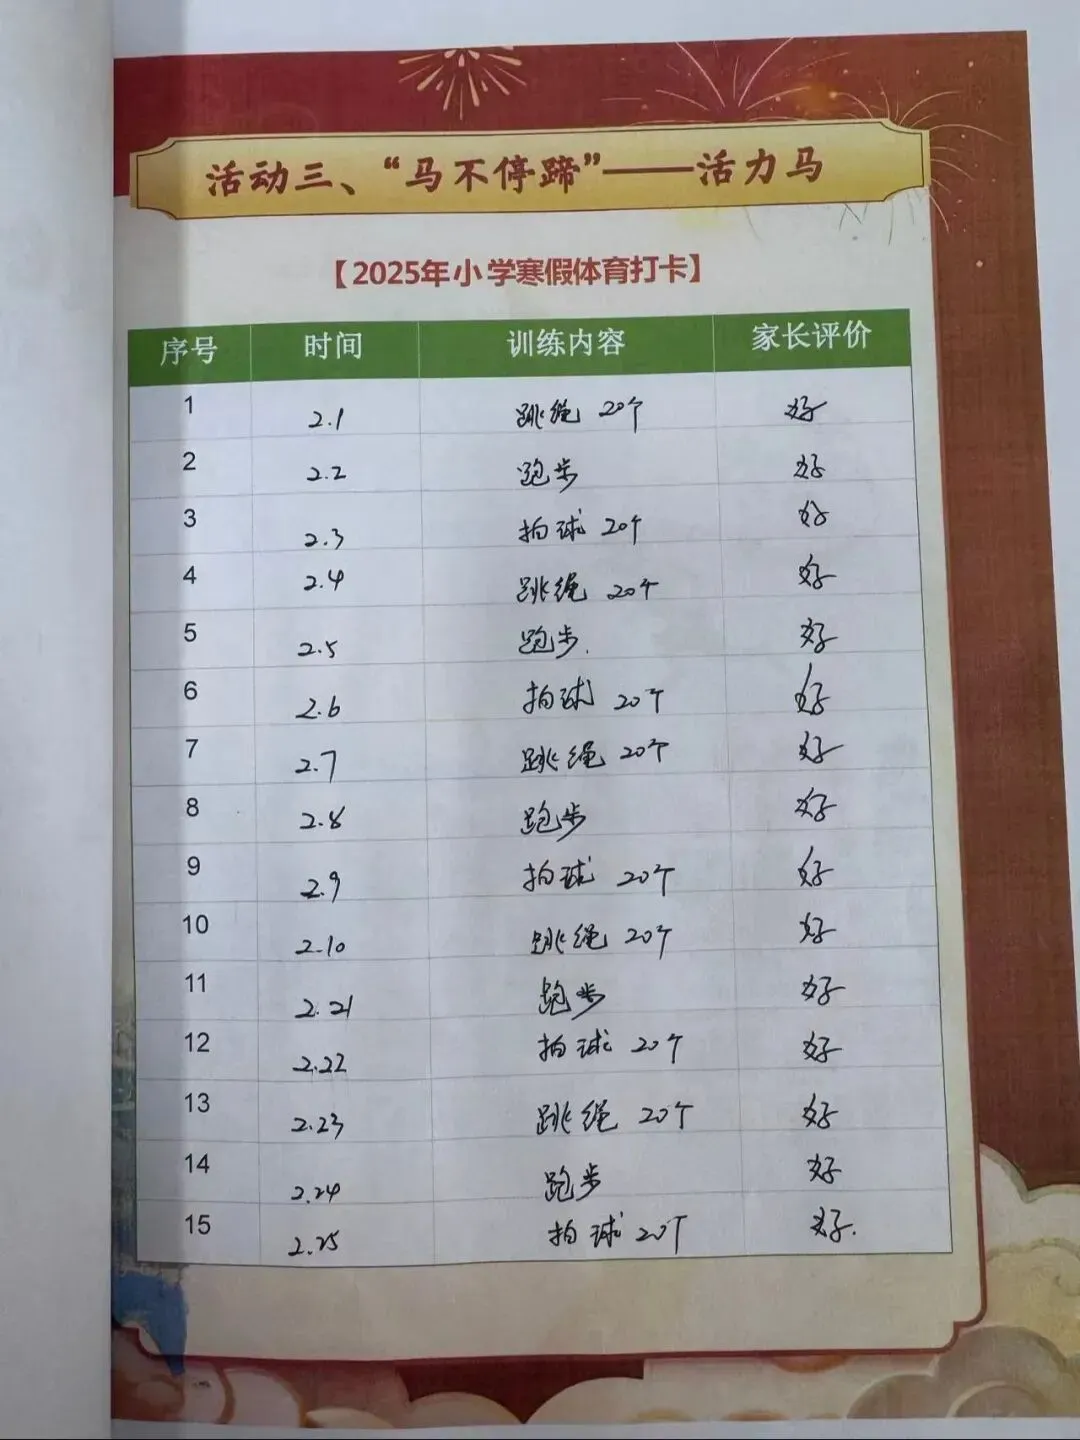 活动三、“马不停蹄”——活力马
【2025年小学寒假体育打卡】
序号 时间 训练内容 家长评价
1 2.1 跳绳 20个 好
2 2.2 跑步 好
3 2.3 拍球 20个 好
4 2.4 跳绳 20个 好
5 2.5 跑步. 好
6 2.6 拍球 20个 好
7 2.7 跳绳 20个 好
8 2.8 跑步 好
9 2.9 拍球 20个 好
10 2.10 跳绳 20个 好
11 2.21 跑步 好
12 2.22 拍球 20个 好
13 2.23 跳绳 20个 好
14 2.24 跑步 好
15 2.25 拍球 20个 好.